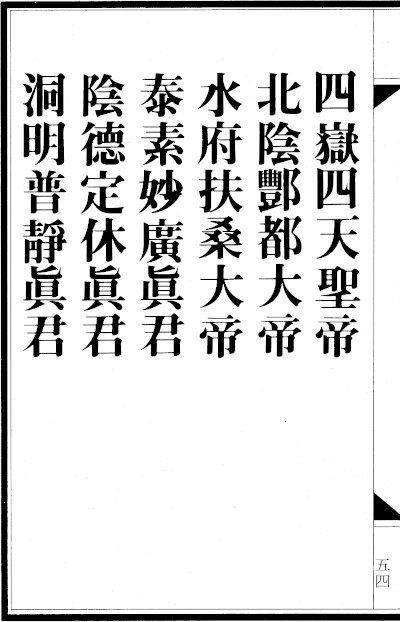 四嶽四天聖帝
北陰酆都大帝
水府扶桑大帝
泰素妙廣眞君
陰德定休眞君
洞明普靜眞君
五四